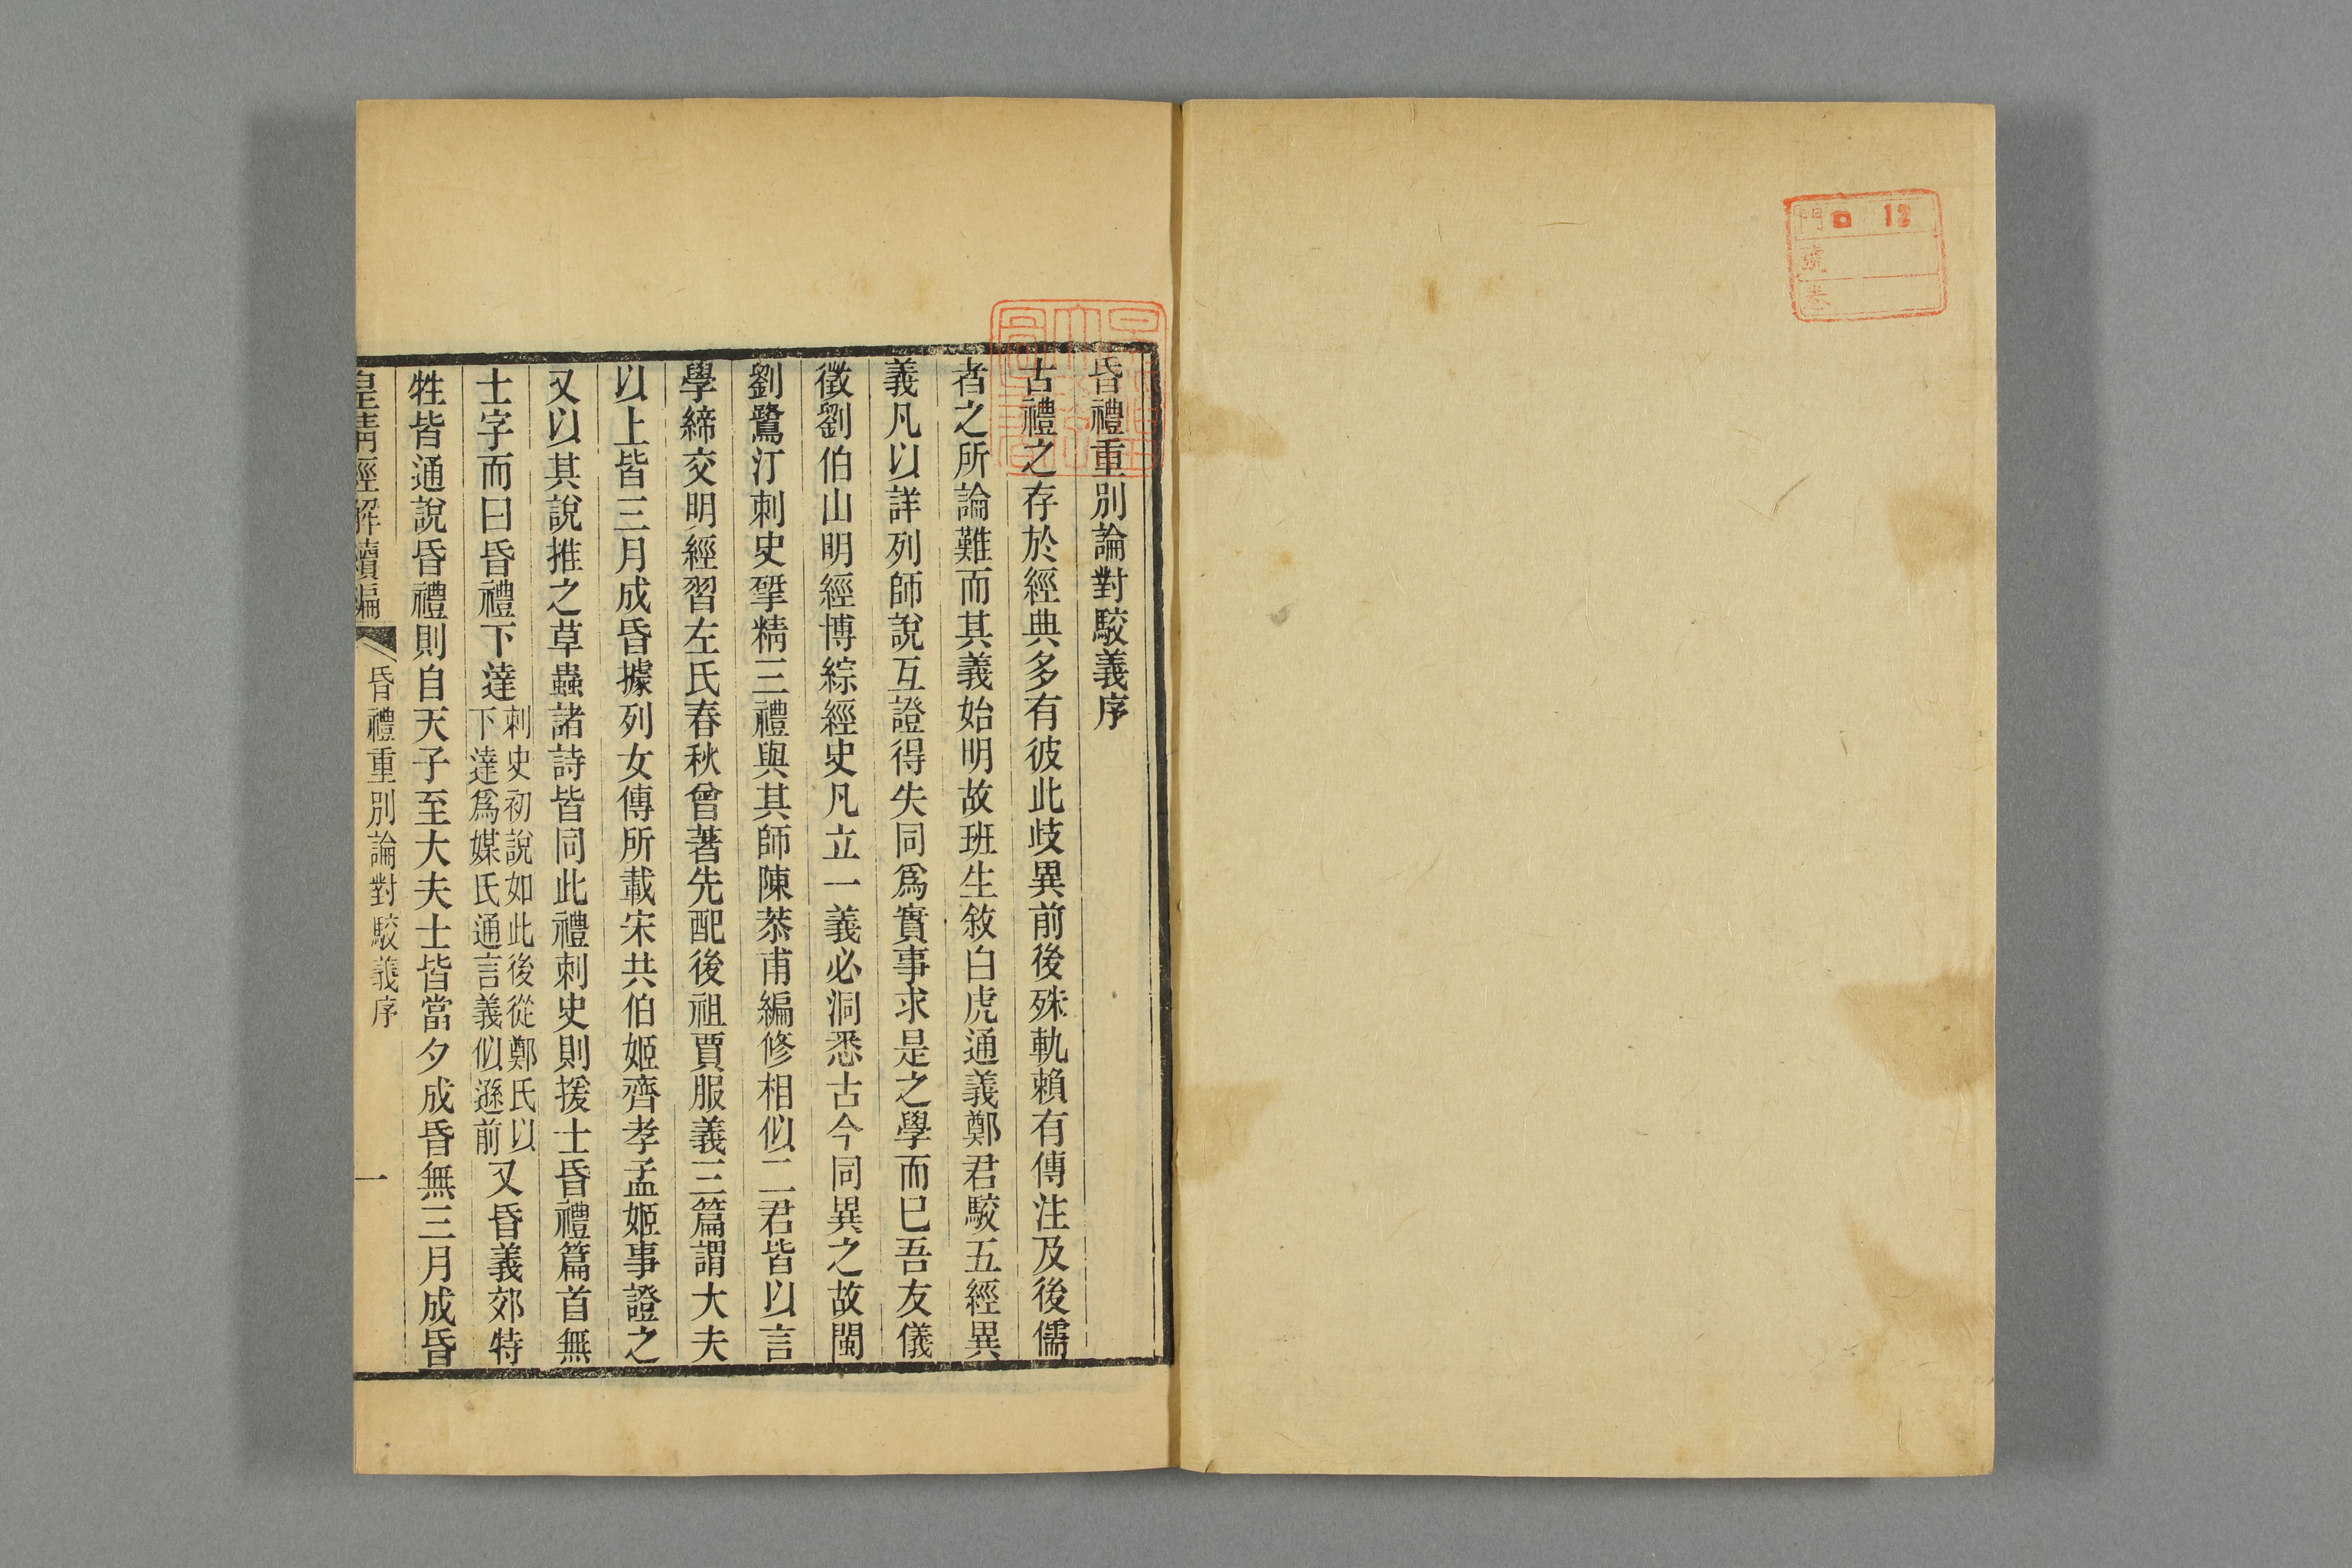 門 口 12
號
卷
昏禮重別論對駮義序
古禮之存於經典多有彼此歧異前後殊軌賴有傳注及後儒
者之所論難而其義始明故班生敘白虎通義鄭君駮五經異
義凡以詳列師說互證得失同爲實事求是之學而已吾友儀
徵劉伯山明經博綜經史凡立一義必洞悉古今同異之故閩
劉鷺汀刺史揅精三禮與其師陳恭甫編修相似二君皆以言
學締交明經習左氏春秋曾著先配後祖賈服義三篇謂大夫
以上皆三月成昏據列女傳所載宋共伯姬齊孝孟姬事證之
又以其說推之草蟲諸詩皆同此禮刺史則援士昏禮篇首無
士字而曰昏禮下達刺史初說如此後從鄭氏以下達爲媒氏通言義似遜前又昏義郊特
牲皆通說昏禮則自天子至大夫士皆當夕成昏無三月成昏
皇清經解續編
昏禮重別論對駮義序
一